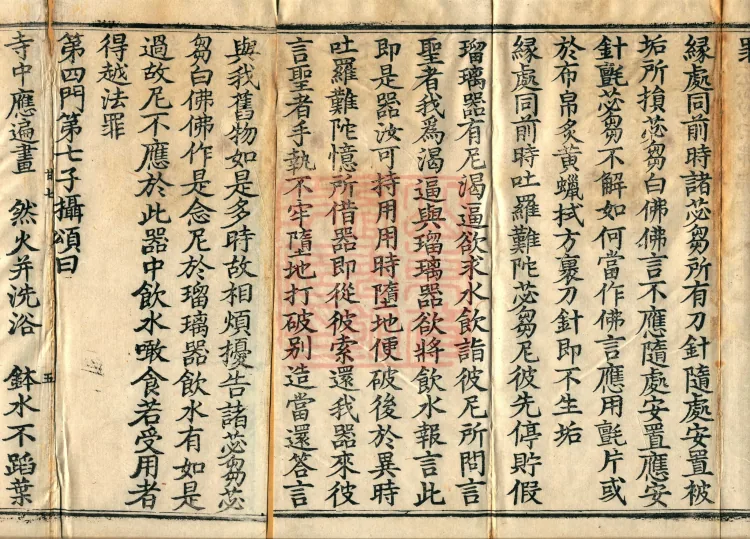 罪
緣處同前時諸苾芻所有刀針隨處安置被
垢所損苾芻白佛佛言不應隨處安置應安
針氈苾芻不解如何當作佛言應用氈片或
於布帛炙黃蠟拭方裹刀針即不生垢
緣處同前時吐羅難陀苾芻尼彼先停貯假
瑠璃器有尼渴逼欲求水飲詣彼尼所問言
聖者我為渴逼與瑠璃器欲將飲水報言此
即是器汝可持用用時墮地便破後於異時
吐羅難陀憶所借器即從彼索還我器來彼
言聖者手執不牢墮地打破别造當還答言
與我舊物如是多時故相煩擾告諸苾芻苾
芻白佛佛作是念尼於瑠璃器飲水有如是
過故尼不應於此器中飲水噉食若受用者
得越法罪
第四門第七子攝頌曰
廿七 五
寺中應遍畫 然火并洗浴 鉢水不蹈葉